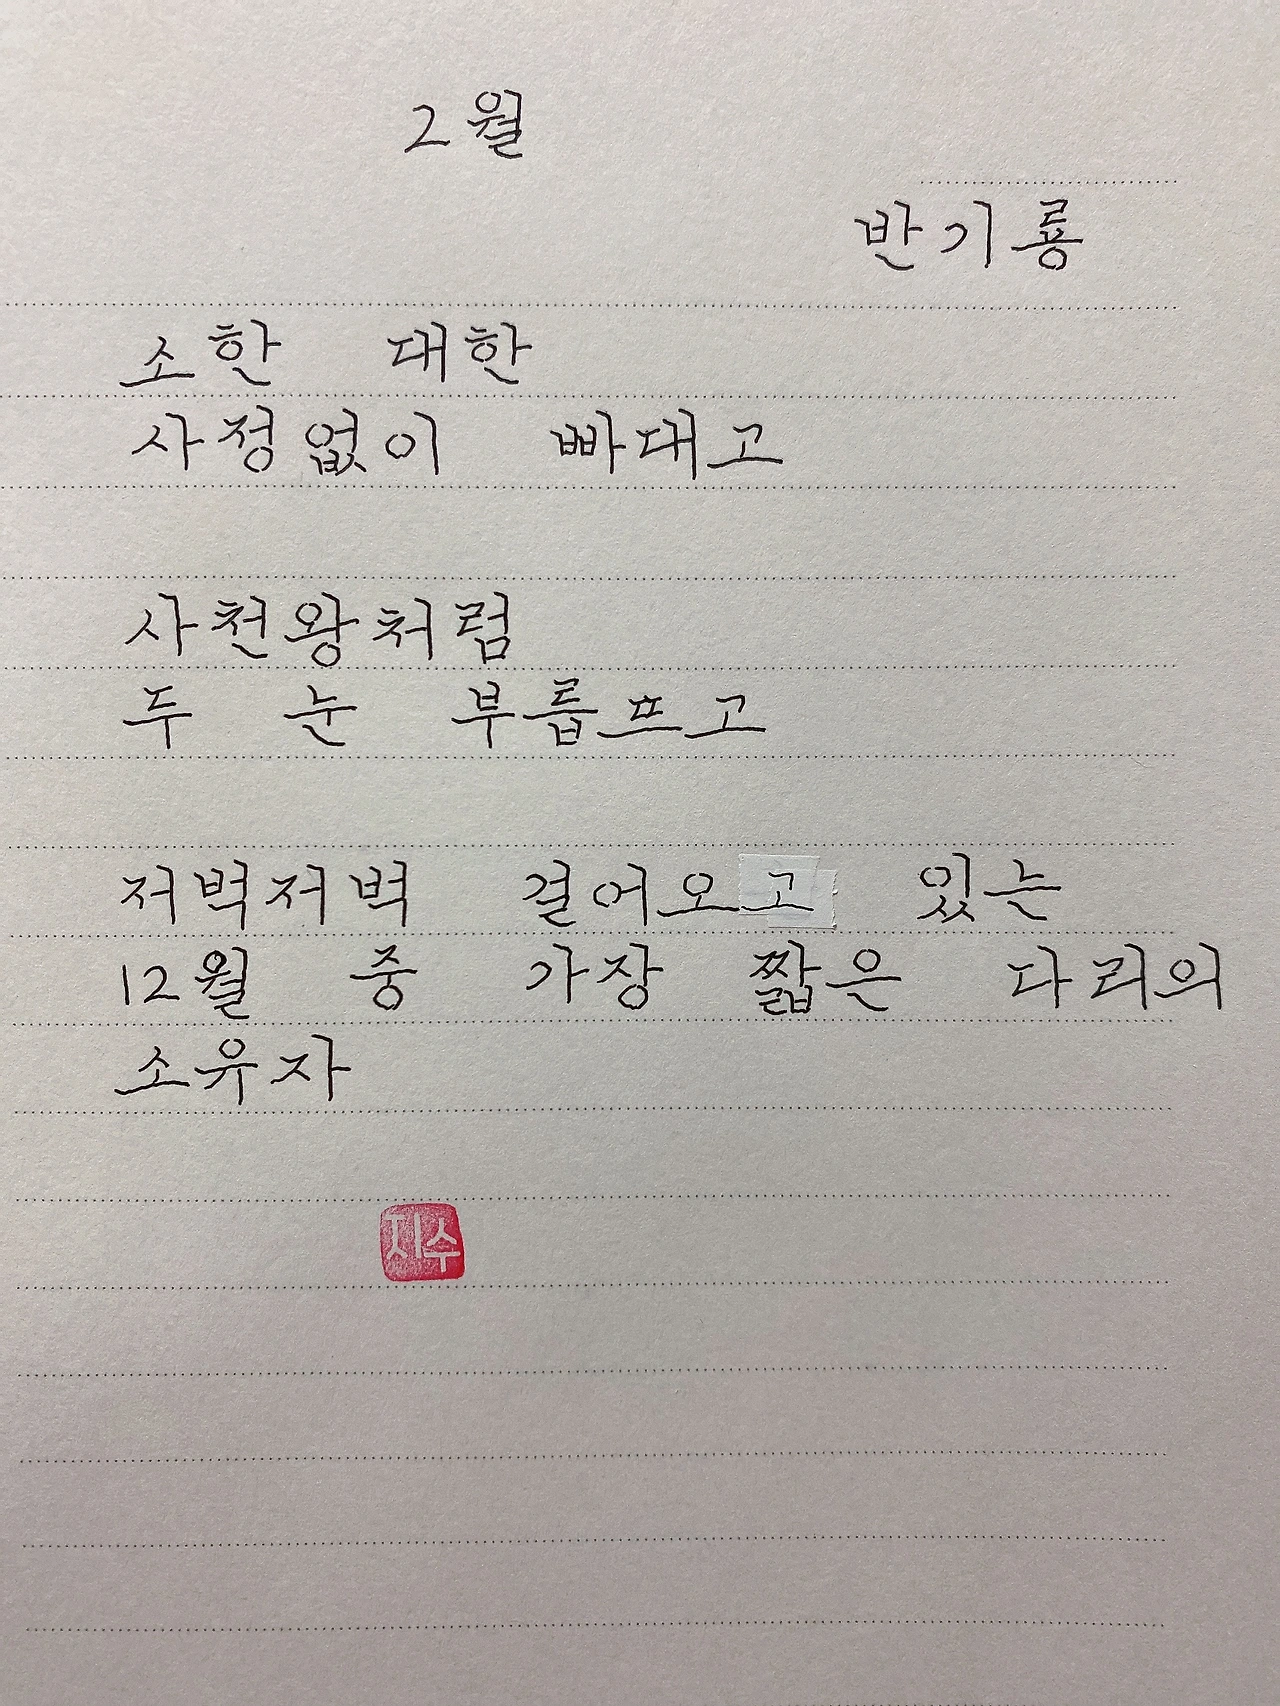 2월
반기룡
소한 대한
사정없이 빠대고
사천왕처럼
두 눈 부릅뜨고
저벅저벅 걸어오고 있는
12월 중 가장 짧은 다리의
소유자
지수